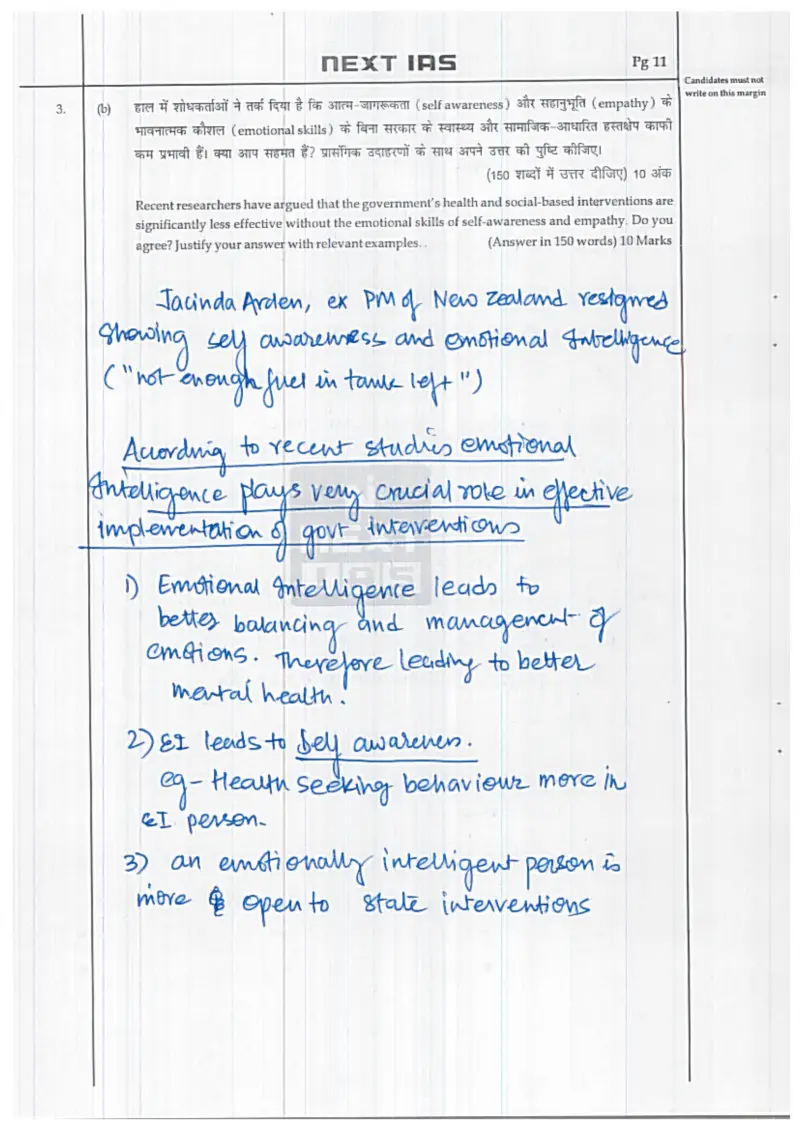 NEXT IAS
Pg 11
Candidates must not
write on this margin
3. (b) हाल में शोधकर्ताओं ने तर्क दिया है कि आत्म-जागरूकता (self awareness) और सहानुभूति (empathy) के
भावनात्मक कौशल (emotional skills) के बिना सरकार के स्वास्थ्य और सामाजिक-आधारित हस्तक्षेप काफी
कम प्रभावी हैं। क्या आप सहमत हैं? प्रासंगिक उदाहरणों के साथ अपने उत्तर की पुष्टि कीजिए।
(150 शब्दों में उत्तर दीजिए) 10 अंक
Recent researchers have argued that the government's health and social-based interventions are
significantly less effective without the emotional skills of self-awareness and empathy. Do you
agree? Justify your answer with relevant examples. .
(Answer in 150 words) 10 Marks
Jacinda Arden, ex PM of New Zealand resigned
showing self awareness and emotional Intelligence
("not enough fuel in tank left")
According to recent studies emotional
Intelligence plays very crucial role in effective
implementation of govt interventions
NEXT
IAS
1) Emotional Intelligence leads to
better balancing and management of
emotions. Therefore leading to better
mental health.
2) EI leads to self awareness.
eg - Health seeking behaviour more in
EI person.
3) an emotionally intelligent person is
more open to state interventions